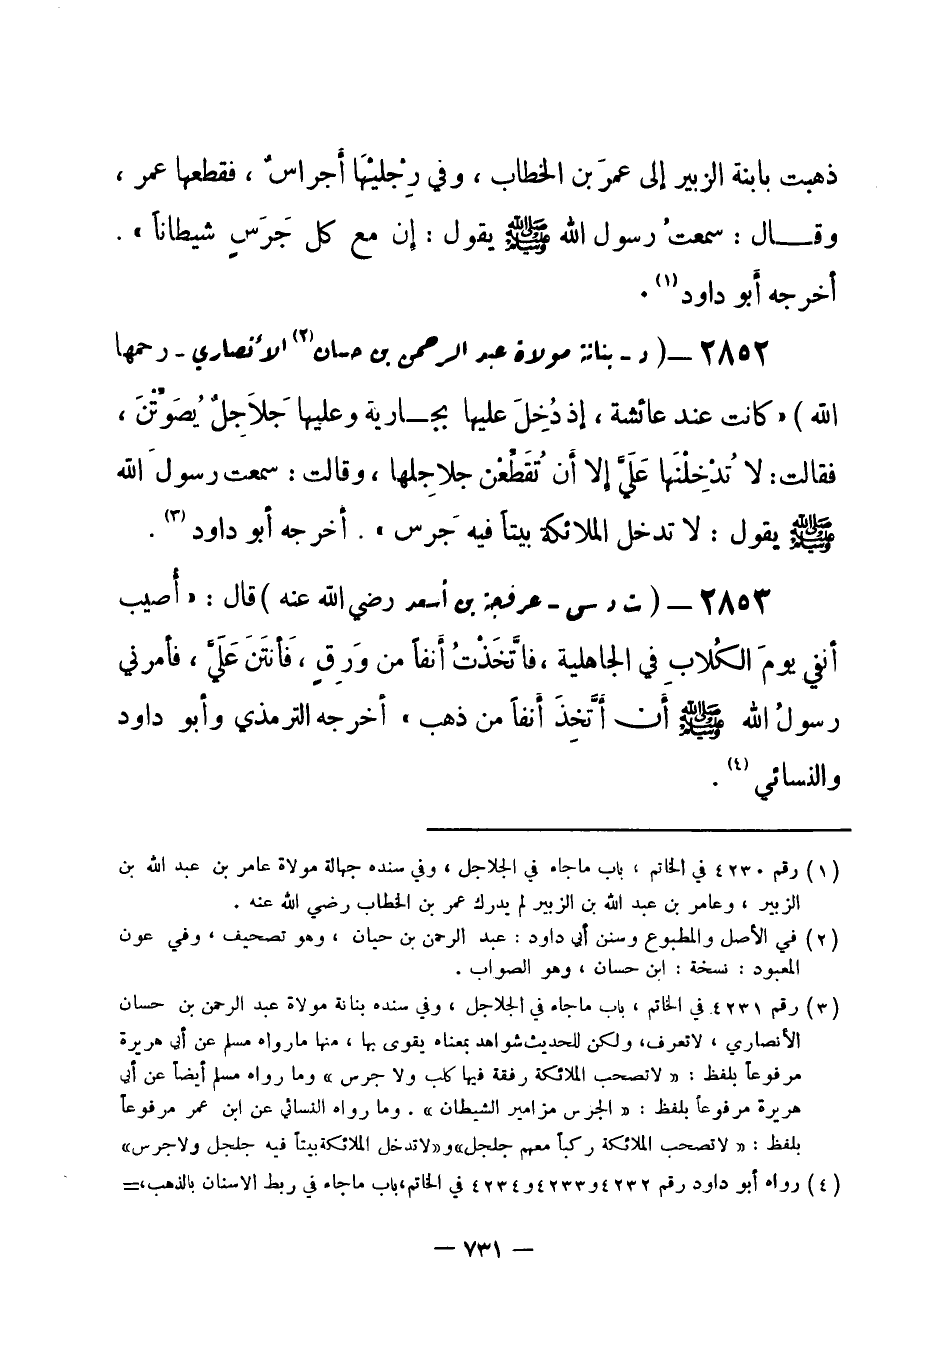 ذهبت بابنة الزبير إلى عمرَ بن الخطاب ، وفي رِجْليْهَا أَجراسٌ ، فقطعها عمر ،
وقــال : سمعتُ رسول الله ﷺ يقول : إن مع كل جَرَسٍ شيطاناً » .
أخرجه أبو داود (١) .
٢٨٥٢ – ( د - بنانة مولاة عبد الرحمن بن حسان (٢) الأنصاري - رحمها
الله ) « كانت عند عائشة ، إذ دُخِلَ عليها بجــارية وعليها جَلاجِلٌ يُصَوِّتْنَ ،
فقالت: لا تُدْخِلْنَها عَلَيَّ إلا أن تُقَطِّعْن جلاجِلها ، وقالت : سمعت رسولَ الله
ﷺ يقول : لا تدخل الملائكة بيتاً فيه جَرس » . أخرجه أبو داود (٣) .
٢٨٥٣ – ( ت د س - عرفجة بن أسعد رضي الله عنه ) قال : « أُصيب
أنفي يومَ الكُلابِ في الجاهلية ، فاتَّخَذْتُ أَنفاً من وَرِقٍ ، فَأَنتَنَ عَلَيَّ ، فأمرني
رسولُ الله ﷺ أَن أَتَّخِذَ أَنفاً من ذهب » أخرجه الترمذي وأبو داود
والنسائي (٤) .
(١) رقم ٤٢٣٠ في الخاتم ، باب ماجاء في الجلاجل ، وفي سنده جهالة مولاة عامر بن عبد الله بن
الزبير ، وعامر بن عبد الله بن الزبير لم يدرك عمر بن الخطاب رضي الله عنه .
(٢) في الأصل والمطبوع وسنن أبي داود : عبد الرحمن بن حيان ، وهو تصحيف ، وفي عون
المعبود : نسخة : ابن حسان ، وهو الصواب .
(٣) رقم ٤٢٣١ في الخاتم ، باب ماجاء في الجلاجل ، وفي سنده بنانة مولاة عبد الرحمن بن حسان
الأنصاري ، لاتعرف، ولكن للحديث شواهد بمعناه يقوى بها ، منها مارواه مسلم عن أبي هريرة
مرفوعاً بلفظ : « لاتصحب الملائكة رفقة فيها كلب ولا جرس » وما رواه مسلم أيضاً عن أبي
هريرة مرفوعاً بلفظ : « الجرس مزامير الشيطان » . وما رواه النسائي عن ابن عمر مرفوعاً
بلفظ : « لاتصحب الملائكة ركباً معهم جلجل»و«لاتدخل الملائكة بيتاً فيه جلجل ولاجرس»
(٤) رواه أبو داود رقم ٤٢٣٢ و٤٢٣٣ و٤٢٣٤ في الخاتم،باب ماجاء في ربط الاسنان بالذهب،=
– ٧٣١ –